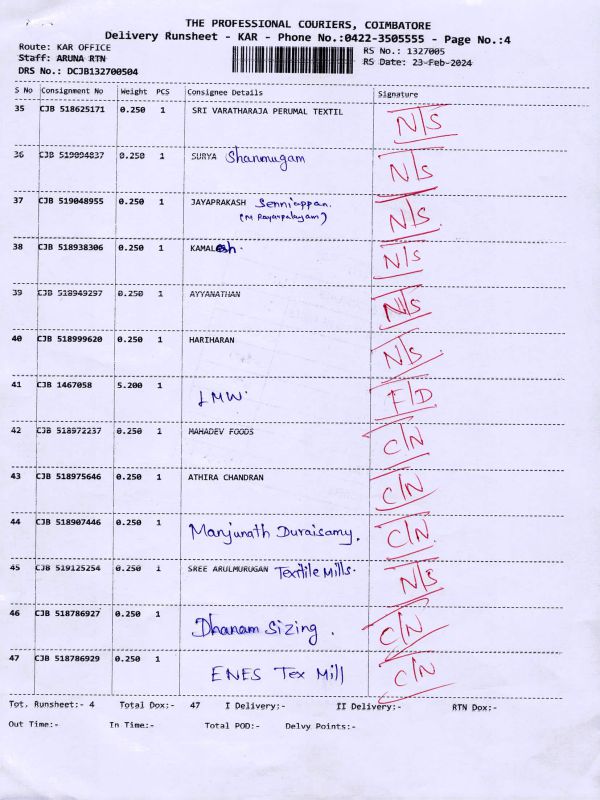 THE PROFESSIONAL COURIERS, COIMBATORE
Delivery Runsheet - KAR - Phone No.:0422-3505555 - Page No.:4
Route: KAR OFFICE RS No.: 1327005
Staff: ARUNA RTN RS Date: 23-Feb-2024
DRS No.: DCJB132700504
S No Consignment No Weight PCS Consignee Details Signature
35 CJB 518625171 0.250 1 SRI VARATHARAJA PERUMAL TEXTIL N/S
36 CJB 519094837 0.250 1 SURYA Shanmugam N/S
37 CJB 519048955 0.250 1 JAYAPRAKASH Senniappan. N/S
(M Rayarpalayam)
38 CJB 518938306 0.250 1 KAMALesh. N/S
39 CJB 518949297 0.250 1 AYYANATHAN N/S
40 CJB 518999620 0.250 1 HARIHARAN N/S
41 CJB 1467058 5.200 1 LMW. F/D
42 CJB 518972237 0.250 1 MAHADEV FOODS C/N
43 CJB 518975646 0.250 1 ATHIRA CHANDRAN C/N
44 CJB 518907446 0.250 1 Manjunath Duraisamy. C/N
45 CJB 519125254 0.250 1 SREE ARULMURUGAN Textile Mills. N/S
46 CJB 518786927 0.250 1 Dhanam Sizing. C/N
47 CJB 518786929 0.250 1 ENES Tex Mill C/N
Tot. Runsheet:- 4 Total Dox:- 47 I Delivery:- II Delivery:- RTN Dox:-
Out Time:- In Time:- Total POD:- Delvy Points:-